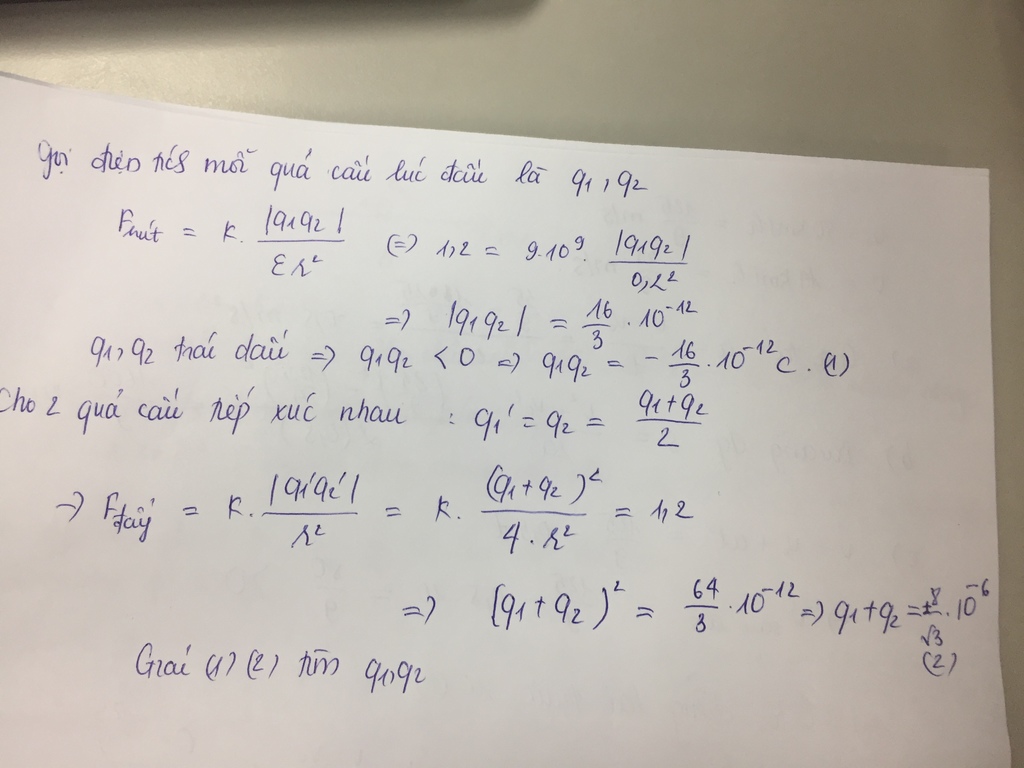 Gọi điện tích mỗi quả cầu lúc đầu là q1, q2
Fhút = k. |q1q2| / εr² (=) 1,2 = 9.10⁹. |q1q2| / 0,2²
=> |q1q2| = 16/3 . 10⁻¹²
q1, q2 trái dấu => q1q2 < 0 => q1q2 = - 16/3 . 10⁻¹² C. (1)
Cho 2 quả cầu tiếp xúc nhau : q1' = q2 = q1+q2 / 2
→ Fđẩy = k. |q1'q2'| / r² = k. (q1+q2)² / 4.r² = 1,2
=> (q1+q2)² = 64/3 . 10⁻¹² => q1+q2 = ± 8/√3 . 10⁻⁶ (2)
Giải (1) (2) tìm q1, q2